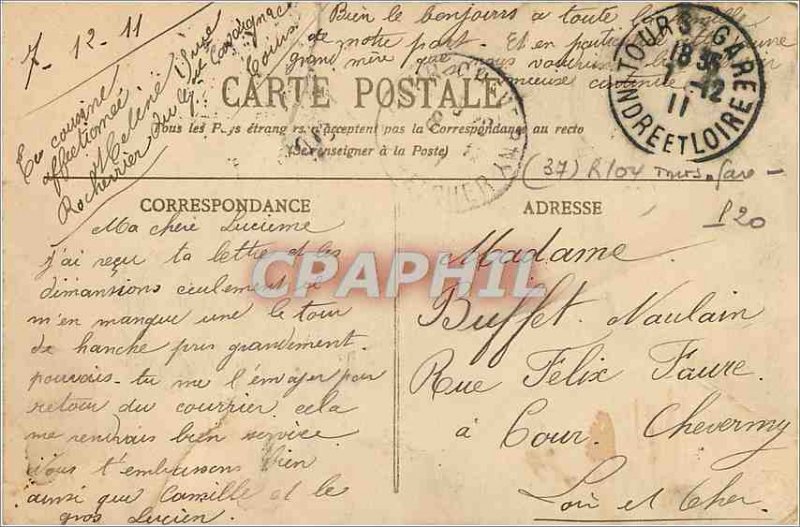 7-12-11
Bien le bonjours a toute la famille
de notre part. Et en particulier
grand mère que nous voudrions bien
continue
Ta cousine
affectionnée
Hélène
Rocherrier
rue
Cavaignac
Tours
CARTE POSTALE
Tous les Pays étrangers n'acceptent pas la Correspondance au recto
(Se renseigner à la Poste)
TOURS GARE
18 35
7-12
11
INDRE ET LOIRE
(37) R104 Tours-gare -
120
CORRESPONDANCE
Ma chère Lucienne
j'ai reçu ta lettre et les
dimansions seulement il
m'en manque une le tour
de hanche pris grandement.
pouvais-tu me l'envoyer par
retour du courrier. cela
me rendrais bien service
Nous t'embrassons bien
ainsi que Camille et le
gros Lucien.
ADRESSE
Madame
Buffet. Naulain
Rue Félix Faure.
à Cour. Cheverny
Loir et Cher
CPAPHIL